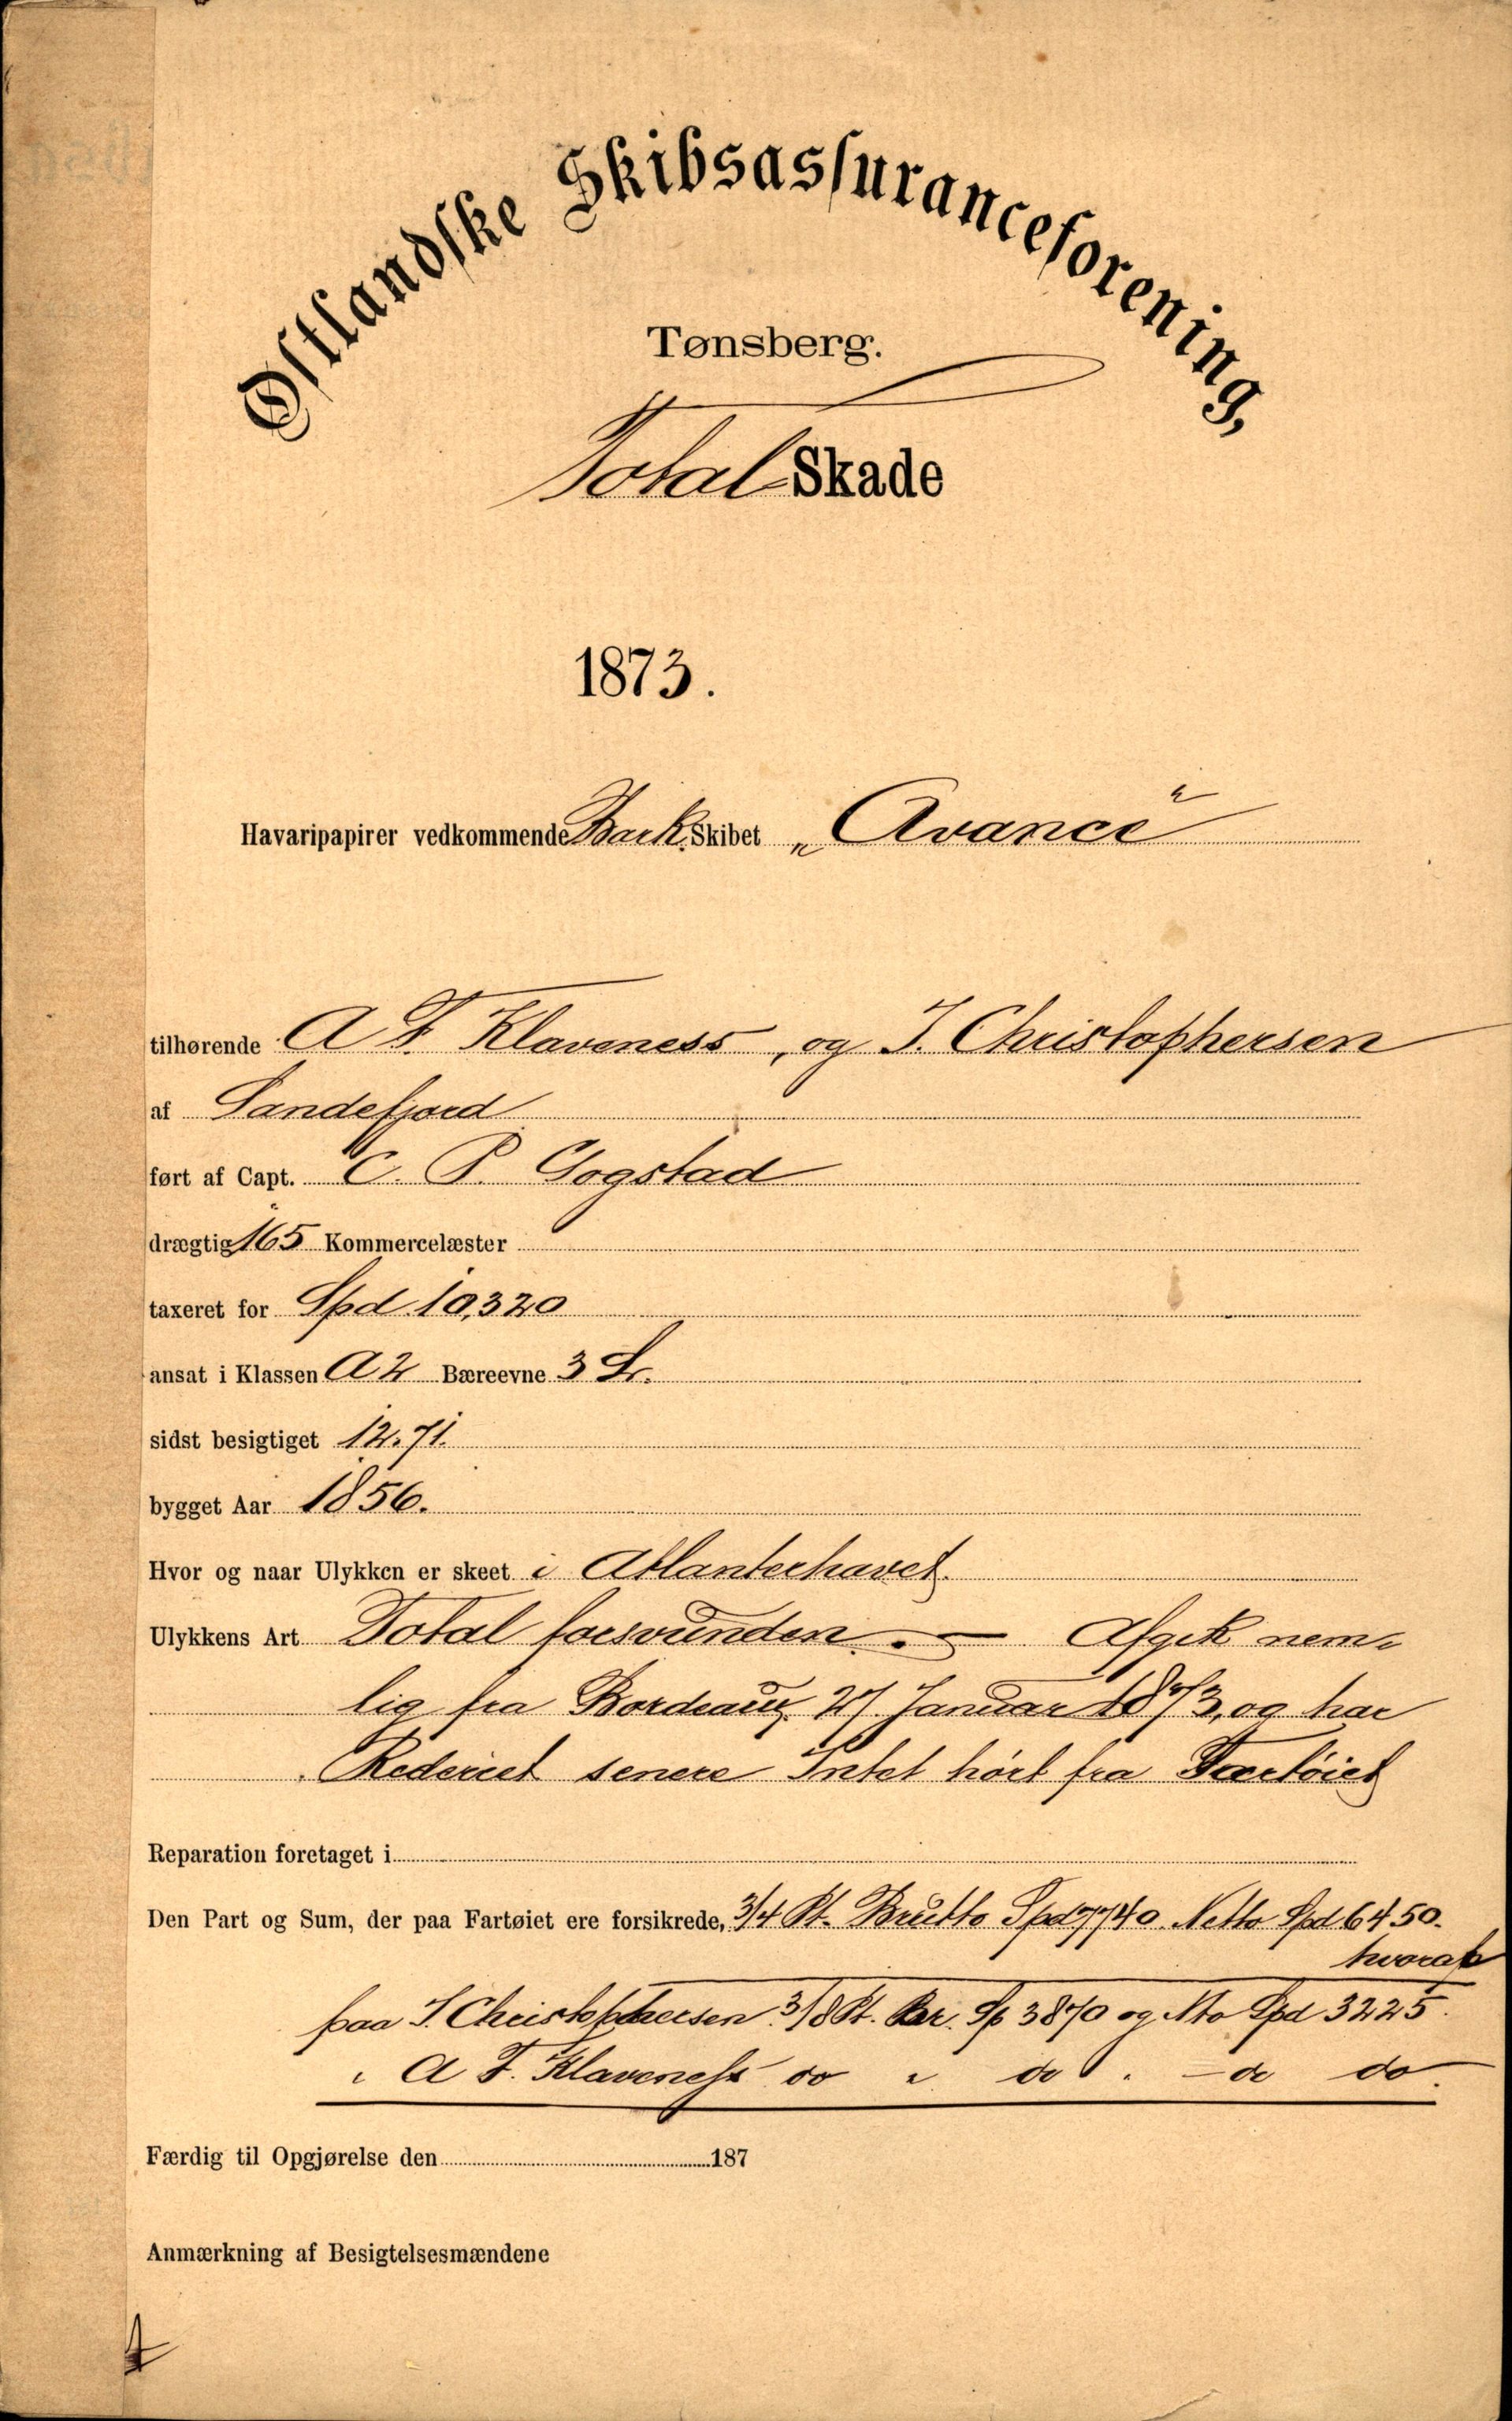 Østlandske Skibsassuranceforening,
Tønsberg.
Total Skade
1873.
Havaripapirer vedkommende Bark Skibet „Avance"
tilhørende A F. Klaveness, og J. Christophersen
af Sandefjord
ført af Capt. C. P. Gogstad
drægtig 165 Kommercelæster
taxeret for Spd 10,320
ansat i Klassen A 2 Bæreevne 3 Gr.
sidst besigtiget 12.71.
bygget Aar 1856.
Hvor og naar Ulykken er skeet i Atlanterhavet.
Ulykkens Art Total forsvunden. — Afgik nem-
lig fra Bordeaux 27. Januar 1873, og har
Rederiet senere Intet hört fra Fartöiet
Reparation foretaget i
Den Part og Sum, der paa Fartøiet ere forsikrede, 3/4 Pt. Brutto Spd 7740. Netto Spd 6450.
hvoraf
paa J. Christophersen 3/8 Pt. Br. Sp 3870 og Nto Spd 3225.
" A F. Klaveness do " do " - do do.
Færdig til Opgjørelse den 187
Anmærkning af Besigtelsesmændene